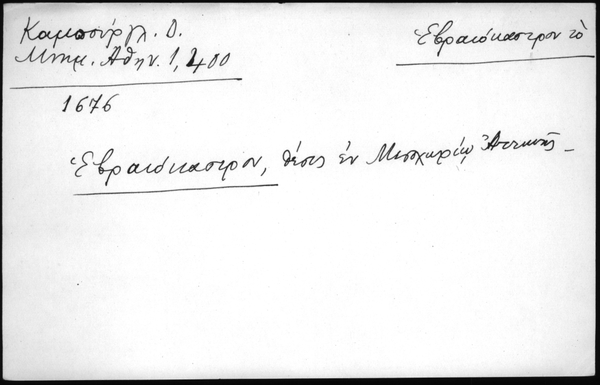 Καμπούργλ. Δ.
Μνημ. Αθην. 1, 200
Ἑβραιόκαστρον τὸ
1676
Ἑβραιόκαστρον, θέσις ἐν Μεσοχωρίῳ Ἀττικῆς_